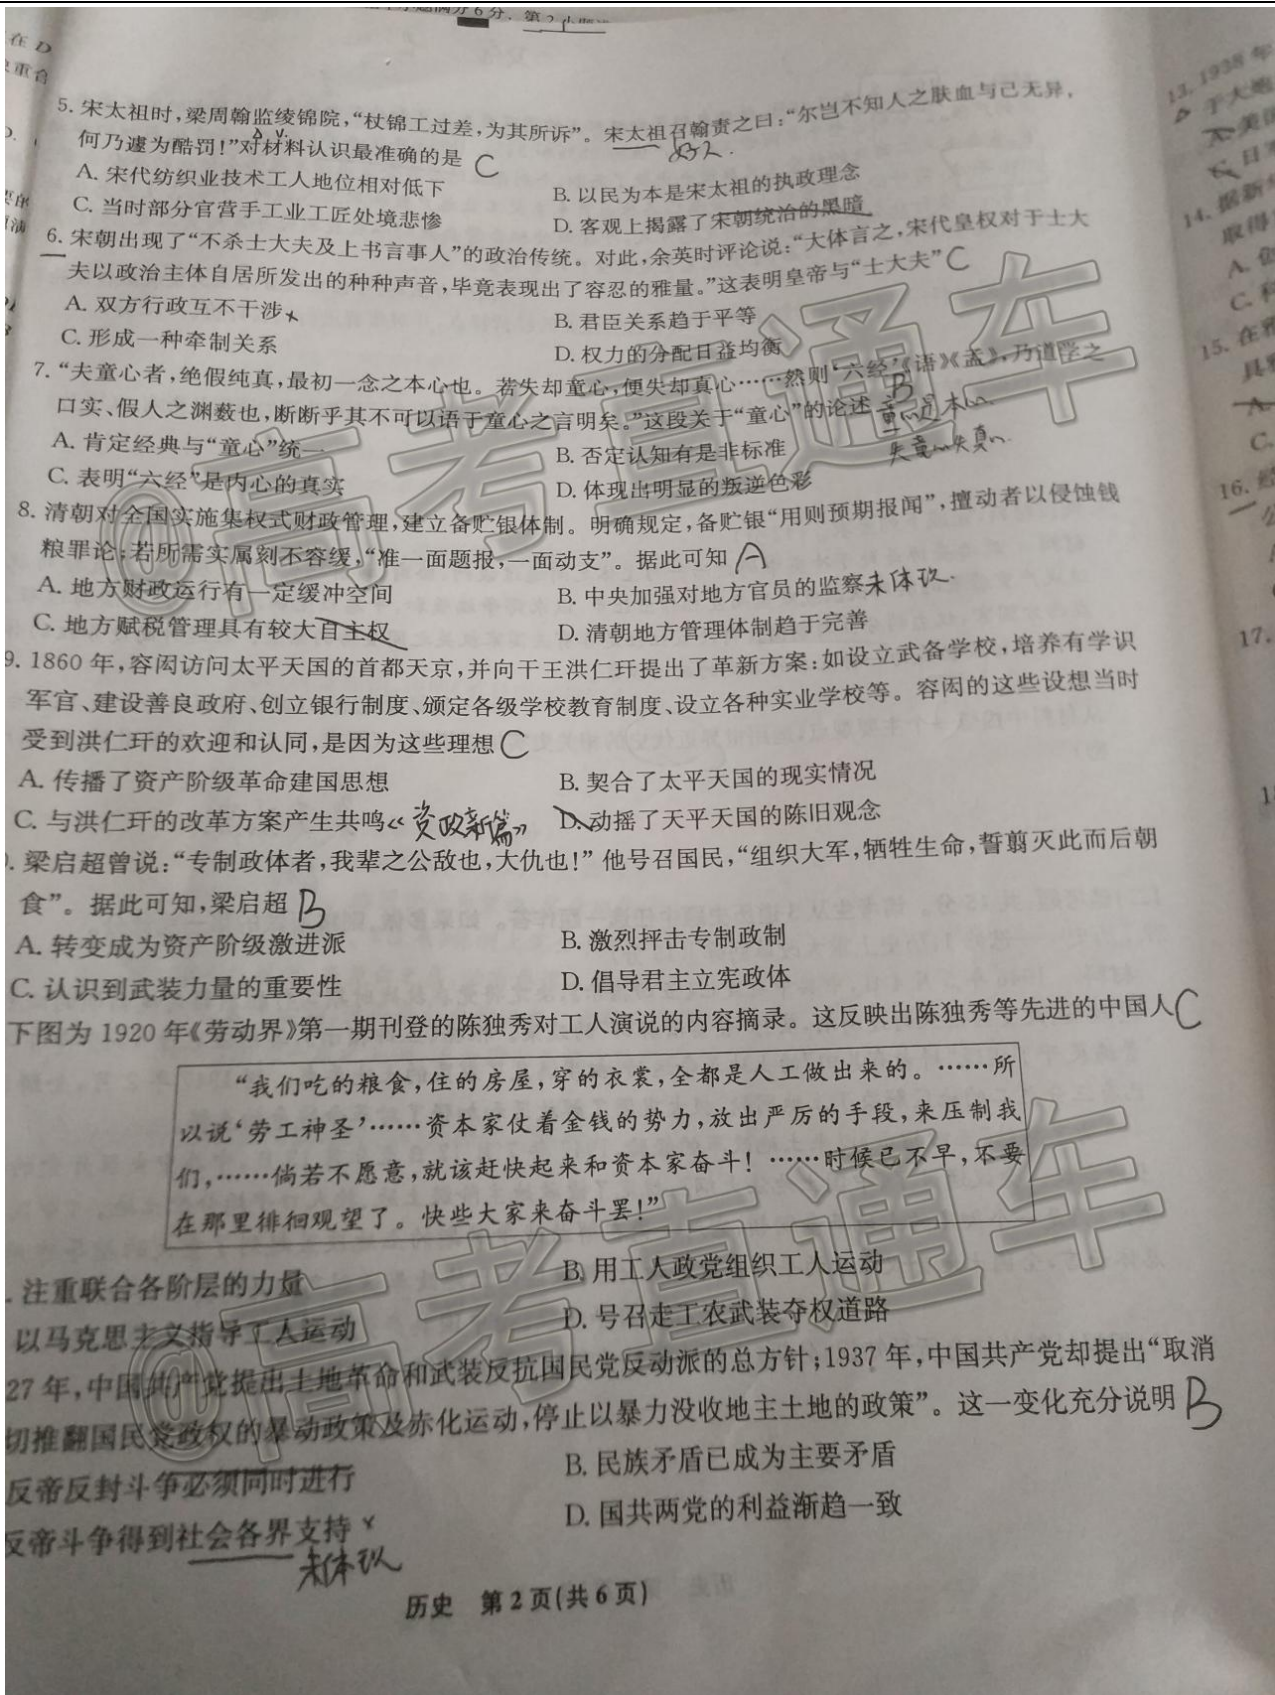 小题满分6分,第2小题
5. 宋太祖时,梁周翰监绫锦院,“杖锦工过差,为其所诉”。宋太祖召翰责之曰:“尔岂不知人之肤血与己无异,
何乃遽为酷罚!”对材料认识最准确的是 C
好人.
A. 宋代纺织业技术工人地位相对低下
B. 以民为本是宋太祖的执政理念
C. 当时部分官营手工业工匠处境悲惨
D. 客观上揭露了宋朝统治的黑暗
6. 宋朝出现了“不杀士大夫及上书言事人”的政治传统。对此,余英时评论说:“大体言之,宋代皇权对于士大
夫以政治主体自居所发出的种种声音,毕竟表现出了容忍的雅量。”这表明皇帝与“士大夫” C
A. 双方行政互不干涉 x
B. 君臣关系趋于平等
C. 形成一种牵制关系
D. 权力的分配日益均衡
7. “夫童心者,绝假纯真,最初一念之本心也。若失却童心,便失却真心……然则‘六经’《语》《孟》,乃道学之
口实、假人之渊薮也,断断乎其不可以语于童心之言明矣。”这段关于“童心”的论述 B
童心是本心.
失童心失真心.
A. 肯定经典与“童心”统一
B. 否定认知有是非标准
C. 表明“六经”是内心的真实
D. 体现出明显的叛逆色彩
8. 清朝对全国实施集权式财政管理,建立备贮银体制。明确规定,备贮银“用则预期报闻”,擅动者以侵蚀钱
粮罪论;若所需实属刻不容缓,“准一面题报,一面动支”。据此可知 A
A. 地方财政运行有一定缓冲空间
B. 中央加强对地方官员的监察 未体现.
C. 地方赋税管理具有较大自主权
D. 清朝地方管理体制趋于完善
9. 1860年,容闳访问太平天国的首都天京,并向干王洪仁玕提出了革新方案:如设立武备学校,培养有学识
军官、建设善良政府、创立银行制度、颁定各级学校教育制度、设立各种实业学校等。容闳的这些设想当时
受到洪仁玕的欢迎和认同,是因为这些理想 C
A. 传播了资产阶级革命建国思想
B. 契合了太平天国的现实情况
C. 与洪仁玕的改革方案产生共鸣 《资政新篇》
D. 动摇了天平天国的陈旧观念
. 梁启超曾说:“专制政体者,我辈之公敌也,大仇也!”他号召国民,“组织大军,牺牲生命,誓翦灭此而后朝
食”。据此可知,梁启超 B
A. 转变成为资产阶级激进派
B. 激烈抨击专制政制
C. 认识到武装力量的重要性
D. 倡导君主立宪政体
下图为1920年《劳动界》第一期刊登的陈独秀对工人演说的内容摘录。这反映出陈独秀等先进的中国人 C
“我们吃的粮食,住的房屋,穿的衣裳,全都是人工做出来的。……所
以说‘劳工神圣’……资本家仗着金钱的势力,放出严厉的手段,来压制我
们,……倘若不愿意,就该赶快起来和资本家奋斗!……时候已不早,不要
在那里徘徊观望了。快些大家来奋斗罢!”
. 注重联合各阶层的力量
B. 用工人政党组织工人运动
以马克思主义指导工人运动
D. 号召走工农武装夺权道路
27年,中国共产党提出土地革命和武装反抗国民党反动派的总方针;1937年,中国共产党却提出“取消
切推翻国民党政权的暴动政策及赤化运动,停止以暴力没收地主土地的政策”。这一变化充分说明 B
反帝反封斗争必须同时进行
B. 民族矛盾已成为主要矛盾
反帝斗争得到社会各界支持 x
D. 国共两党的利益渐趋一致
未体现
历史 第2页(共6页)
在D
重合
13. 1938年
于大地
A. 美国
C. 日
14. 据新
取得
A. 创
C. 科
15. 在
具
A.
C.
16. 经
17.
@高考直通车
@高考直通车